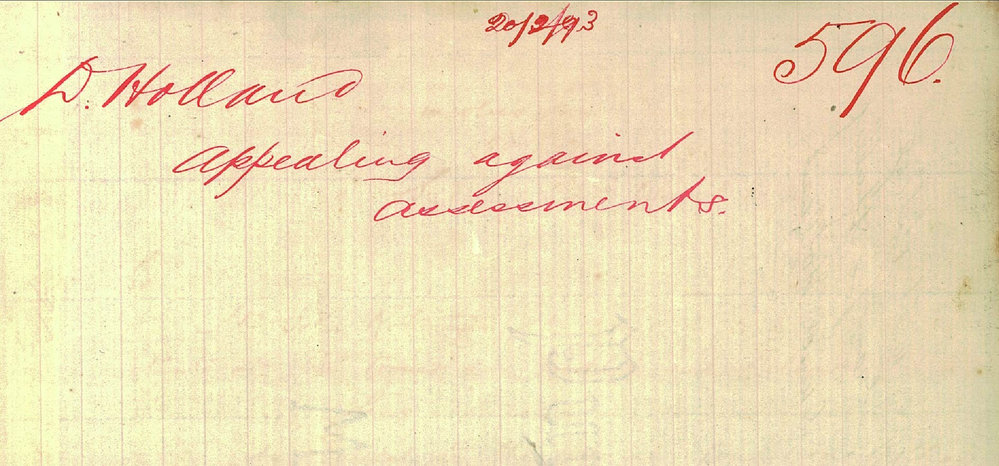 20/2/93
596.
D. Holland
Appealing against
assessments.